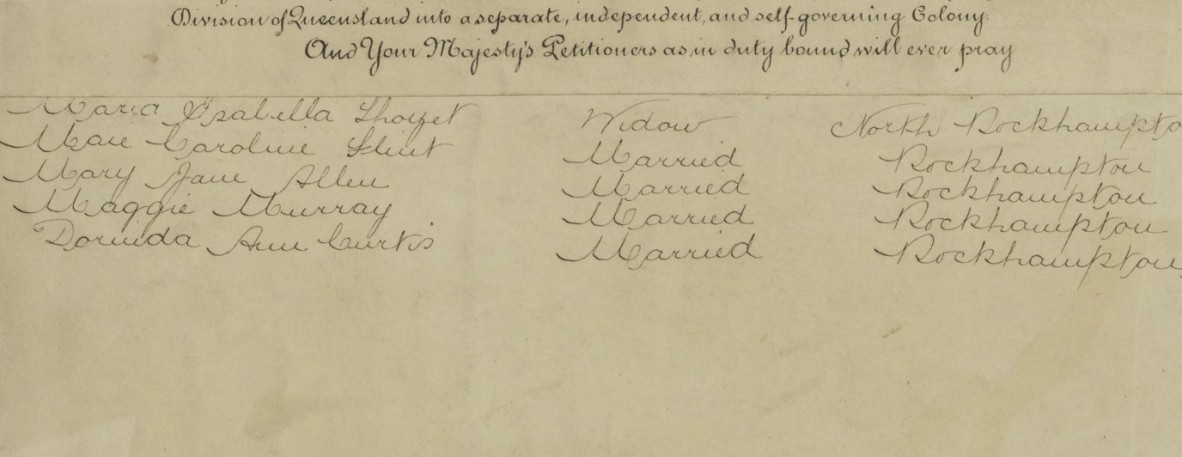 Division of Queensland into a separate, independent, and self-governing Colony.
And Your Majesty's Petitioners as in duty bound will ever pray
Maria Isabella Widow North Rockhampto
Caroline Married Rockhampton
Mary Jane Allen Married Rockhampton
Maggie Murray Married Rockhampton
Dorinda Ann Curtis Married Rockhampton